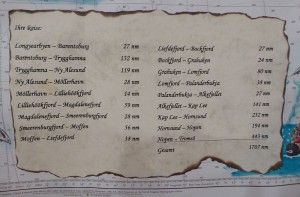 Ihre Reise:
Longyearbyen – Barentsburg 27 nm
Barentsburg – Trygghamna 132 nm
Trygghamna – Ny Alesund 139 nm
Ny Alesund – Möllerhavn 28 nm
Möllerhavn – Lilliehöökfjord 14 nm
Lilliehöökfjord – Magdalenefjord 59 nm
Magdalenefjord – Smeerenburgfjord 28 nm
Smeerenburgfjord – Moffen 56 nm
Moffen – Liefdefjord 36 nm
Liefdefjord – Bockfjord 27 nm
Bockfjord – Gråhuken 24 nm
Gråhuken – Lomfjord 80 nm
Lomfjord – Palanderbukta 34 nm
Palanderbukta – Alkefjellet 27 nm
Alkefjellet – Kap Lee 141 nm
Kap Lee – Hornsund 232 nm
Hornsund – Hopen 194 nm
Hopen – Tromsö 443 nm
Gesamt 1707 nm